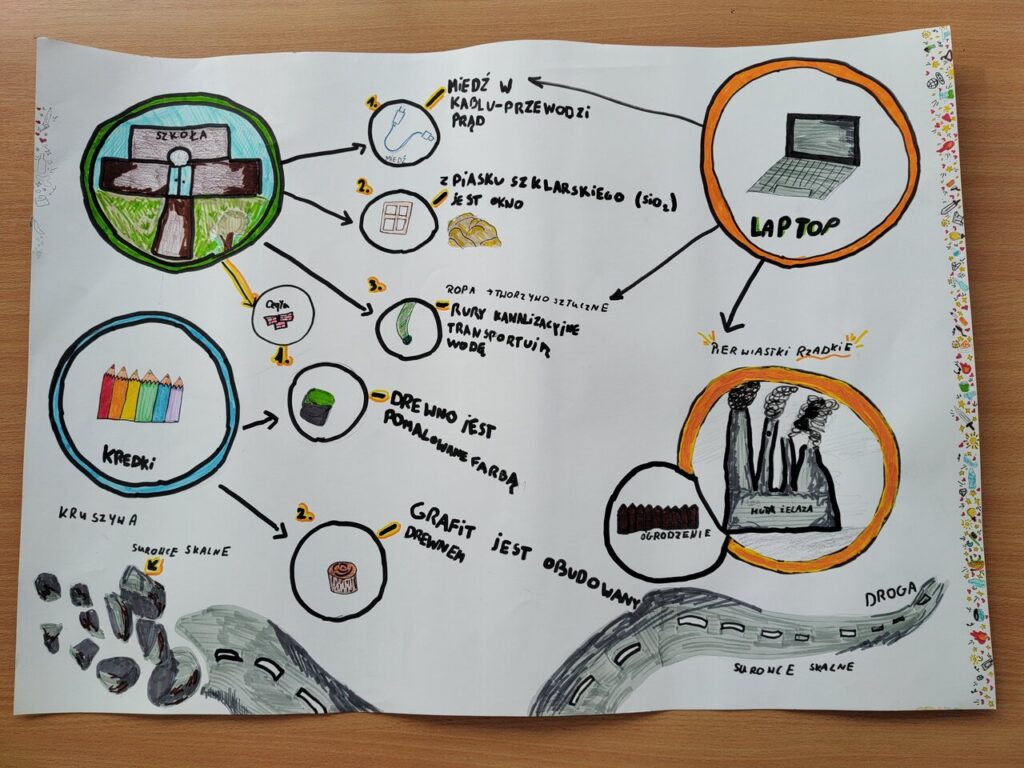 SZKOŁA
1.
MIEDŹ
MIEDŹ W
KABLU-PRZEWODZI
PRĄD
2.
Z PIASKU SZKLARSKIEGO (SiO2)
JEST OKNO
3.
ROPA → TWORZYWO SZTUCZNE
RURY KANALIZACYJNE
TRANSPORTUJĄ
WODĘ
Cegła
1.
LAPTOP
PIERWIASTKI RZADKIE
HUTA ŻELAZA
OGRODZENIE
KREDKI
DREWNO JEST
POMALOWANE FARBĄ
2.
GRAFIT JEST OBUDOWANY
DREWNEM
KRUSZYWA
SUROWCE SKALNE
DROGA
SUROWCE SKALNE